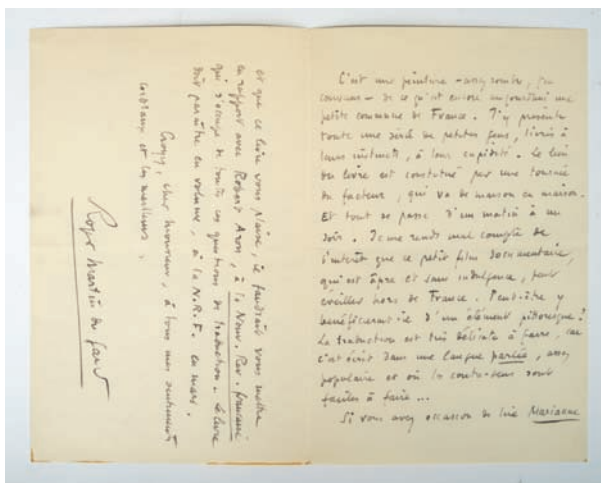 C'est une peinture – assez sombre, j'en
conviens – de ce qu'est encore aujourd'hui une
petite commune de France. J'y présente
toute une série de petites gens, livrés à
leurs instincts, à leur cupidité. Le lien
du livre est constitué par une tournée
du facteur, qui va de maison en maison.
Et tout se passe d'un matin à un
soir. Je me rends mal compte de
l'intérêt que ce petit film documentaire,
qui est âpre et sans indulgence, peut
éveiller hors de France. Peut-être y
bénéficierait-il d'un élément pittoresque ?
La traduction est très délicate à faire, car
c'est écrit dans une langue parlée, assez
populaire et où les contre-sens sont
faciles à faire ...
Si vous avez occasion de lire Marianne
et que ce livre vous plaise, il faudrait vous mettre
en rapport avec Robert Aron, à la Nouv. Rev. française
qui s'occupe de toutes ces questions de traduction. Le livre
doit paraître en volume, à la N.R.F. en mars.
Croyez, cher monsieur, à tous mes sentiments
cordiaux et les meilleurs.
Roger Martin du Gard